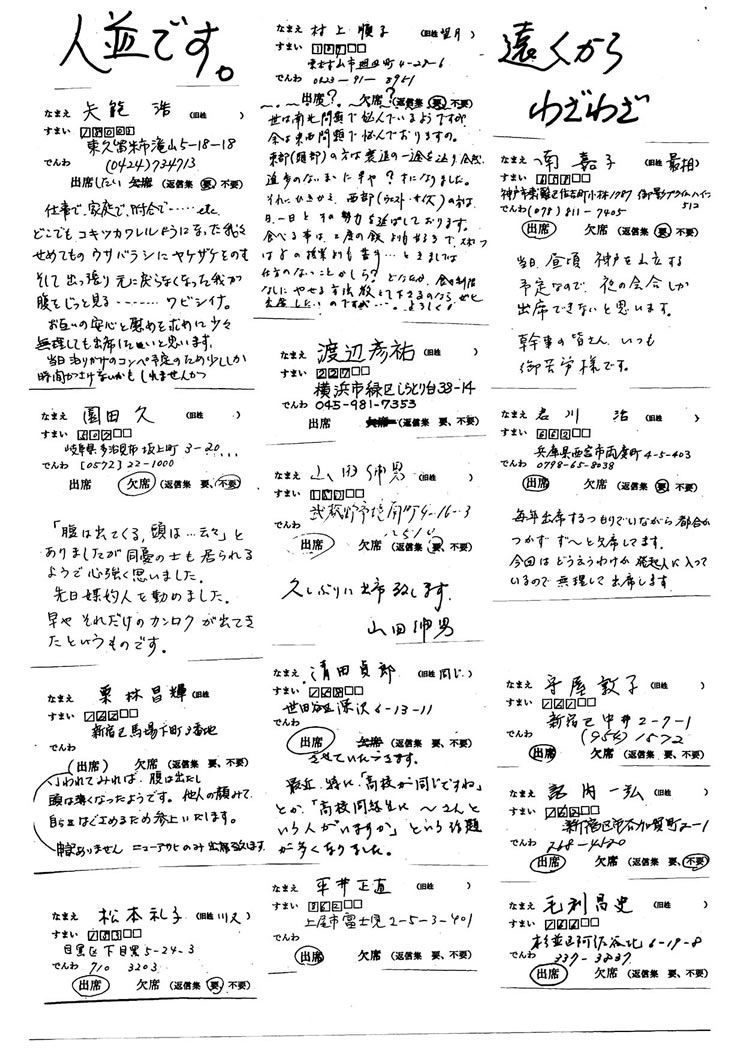 人並です。
なまえ 矢能 浩 (旧姓 )
すまい
東久留米市滝山5-18-18
でんわ (0424)734713
出席したい 欠席 (返信集 要、不要)
仕事で、家庭で、附合で……etc.
どこでもコキツカワレルようになった我々
せめてものウサバラシにヤケザケをのむ
そして出っ張り元に戻らなくなった我が
腹をじっと見る………ワビシイナ。
お互いの安心と慰めを求めに少々
無理しても出席したいと思います。
当日泊りがけのコンペ予定のため少ししか
時間がさけないかもしれませんが
なまえ 園田 久 (旧姓 )
すまい
岐阜県多治見市坂上町 3-20
でんわ (0572)22-1000
出席 欠席 (返信集 要、不要)
「腹は出てくる、頭は…云々」と
ありましたが同憂の士も居られる
ようで心強く思いました。
先日媒妁人を勤めました。
早やそれだけのカンロクが出てき
たというものです。
なまえ 栗林昌輝 (旧姓 )
すまい
新宿区馬場下町3番地
でんわ
(出席) 欠席 (返信集 要、不要)
いわれてみれば、腹は出だし
頭は薄くなったようです。他人の顔みて、
自らをなぐさめるため参上いたします。
申訳ありません ニューアカデのみ出席致します
なまえ 松本礼子 (旧姓 川又)
すまい
目黒区下目黒5-24-3
でんわ 710 3203
出席 欠席 (返信集 要、不要)
なまえ 村上順子 (旧姓 望月)
すまい
町4-28-6
でんわ 0423-91-8951
出席? 欠席? (返信集 要、不要)
世は南北問題で悩んでいるようですが
余は東西問題で悩んでおりますの。
東部(頭部)の方は衰退の一途を辿り
それにひきかえ、西部(ウェスト・サイズ)の方は
日一日とその勢力を延ばしております。
なまえ 渡辺彦祐 (旧姓 )
すまい 227
横浜市緑区しらとり台33-14
でんわ 045-981-7353
出席 欠席 (返信集 要、不要)
なまえ 山田伸男 (旧姓 )
すまい
武蔵野市境南町4-16-3
でんわ
出席 欠席 (返信集 要、不要)
久しぶりに出席致します。
山田伸男
なまえ 清田貞郎 (旧姓 同じ)
すまい
世田谷区深沢6-13-11
でんわ
出席 欠席 (返信集 要、不要)
させていただきます。
最近、特に、「高校が同じですね」
とか、「高校同級生に〜さんと
いう人がいますか」という話題
が多くなりました。
なまえ 平井正直 (旧姓 )
すまい 362
上尾市富士見2-5-3-401
でんわ
出席 欠席 (返信集 要、不要)
遠くから
わざわざ
なまえ 南 嘉子 (旧姓 最相)
すまい
でんわ (078)811-7405
出席 欠席 (返信集 要、不要)
当日、昼頃 神戸を出立する
予定なので、夜の会合しか
出席できないと思います。
幹事の皆さん、いつも
御苦労様です。
なまえ 君川 治 (旧姓 )
すまい 662
兵庫県西宮市両度町4-5-403
でんわ 0798-65-8038
出席 欠席 (返信集 要、不要)
毎年出席するつもりでいながら都合が
つかず ずーと欠席してます。
今回はどういうわけか発起人に入って
いるので無理して出席します
なまえ 守屋敦子 (旧姓 )
すまい 161
新宿区中井2-7-1
でんわ (954)1572
出席 欠席 (返信集 要、不要)
なまえ 一弘 (旧姓 )
すまい 162
新宿区市谷加賀町2-1
でんわ 268-4120
出席 欠席 (返信集 要、不要)
なまえ 毛利昌史 (旧姓 )
すまい 166
杉並区阿佐谷北6-19-8
でんわ 337-3837
出席 欠席 (返信集 要、不要)